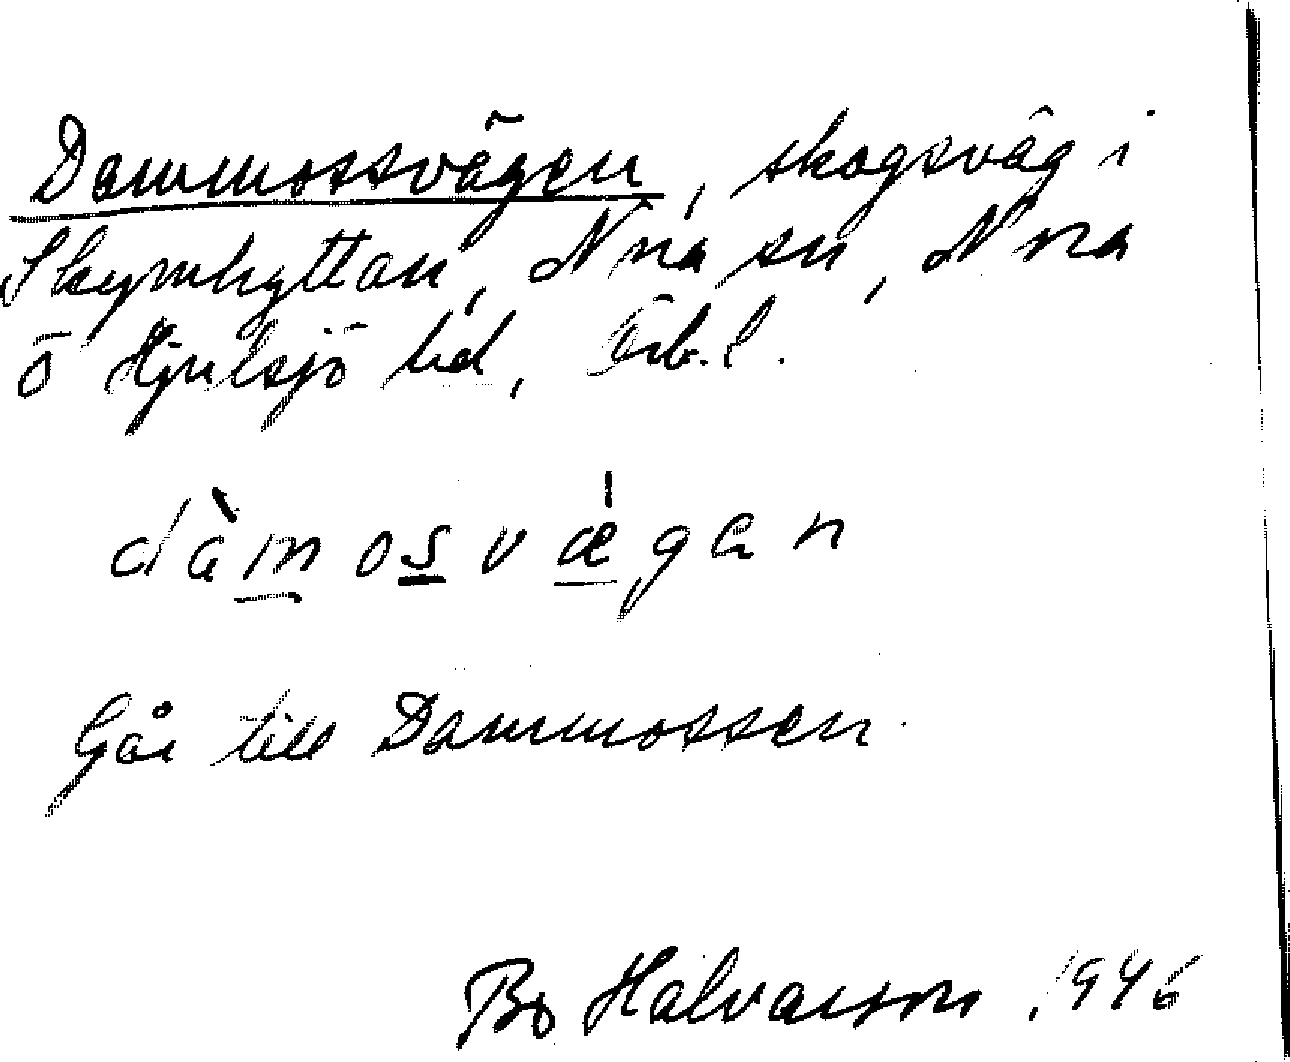 Dammossvägen, skogsväg i
Skymhyttan, Nora sn, Nora
o Hjulsjö bd, Örb. l.
dàmosvǽgan
Går till Dammossen.
Bo Halvarson, 1946